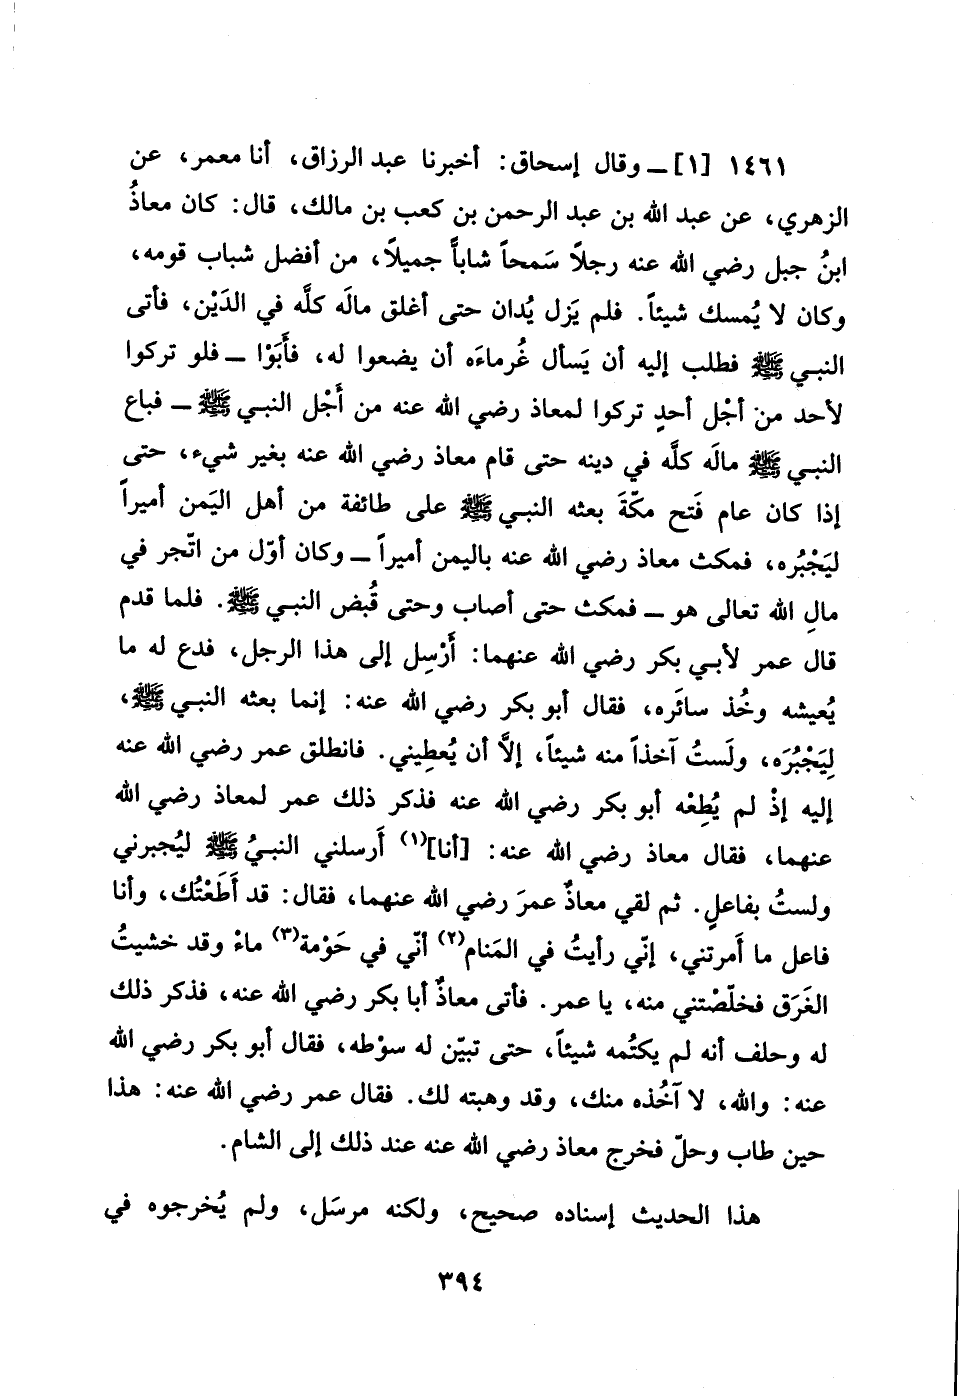 ١٤٦١ [١] ــ وقال إسحاق: أخبرنا عبد الرزاق، أنا معمر، عن
الزهري، عن عبد الله بن عبد الرحمن بن كعب بن مالك، قال: كان معاذُ
ابنُ جبل رضي الله عنه رجلاً سَمحاً شاباً جميلاً، من أفضل شباب قومه،
وكان لا يُمسك شيئاً. فلم يَزل يُدان حتى أغلق مالَه كلَّه في الدَيْن، فأتى
النبي ﷺ فطلب إليه أن يَسأل غُرماءَه أن يضعوا له، فأَبَوْا ــ فلو تركوا
لأحد من أجْل أحدٍ تركوا لمعاذ رضي الله عنه من أَجْل النبي ﷺ ــ فباع
النبي ﷺ مالَه كلَّه في دينه حتى قام معاذ رضي الله عنه بغير شيء، حتى
إذا كان عام فَتح مكّةَ بعثه النبي ﷺ على طائفة من أهل اليَمن أميراً
ليَجْبُره، فمكث معاذ رضي الله عنه باليمن أميراً ــ وكان أوّل من اتّجر في
مالِ الله تعالى هو ــ فمكث حتى أصاب وحتى قُبض النبي ﷺ. فلما قدم
قال عمر لأبي بكر رضي الله عنهما: أَرْسِل إلى هذا الرجل، فدع له ما
يُعيشه وخُذ سائَره، فقال أبو بكر رضي الله عنه: إنما بعثه النبي ﷺ،
لِيَجْبُرَه، ولَستُ آخذاً منه شيئاً، إلاَّ أن يُعطِيني. فانطلق عمر رضي الله عنه
إليه إذْ لم يُطِعْه أبو بكر رضي الله عنه فذكر ذلك عمر لمعاذ رضي الله
عنهما، فقال معاذ رضي الله عنه: [أنا](١) أَرسلني النبيُ ﷺ ليُجبرني
ولستُ بفاعلٍ. ثم لقي معاذٌ عمرَ رضي الله عنهما، فقال: قد أَطَعْتُك، وأنا
فاعل ما أَمرتني، إنّي رأيتُ في المَنام(٢) أنّي في حَوْمة(٣) ماءْ وقد خشيتُ
الغَرَق فخلّصْتني منه، يا عمر. فأتى معاذٌ أبا بكر رضي الله عنه، فذكر ذلك
له وحلف أنه لم يكتُمه شيئاً، حتى تبيّن له سوْطه، فقال أبو بكر رضي الله
عنه: والله، لا آخُذه منك، وقد وهبته لك. فقال عمر رضي الله عنه: هذا
حين طاب وحلّ فخرج معاذ رضي الله عنه عند ذلك إلى الشام.
هذا الحديث إسناده صحيح، ولكنه مرسَل، ولم يُخرجوه في
٣٩٤